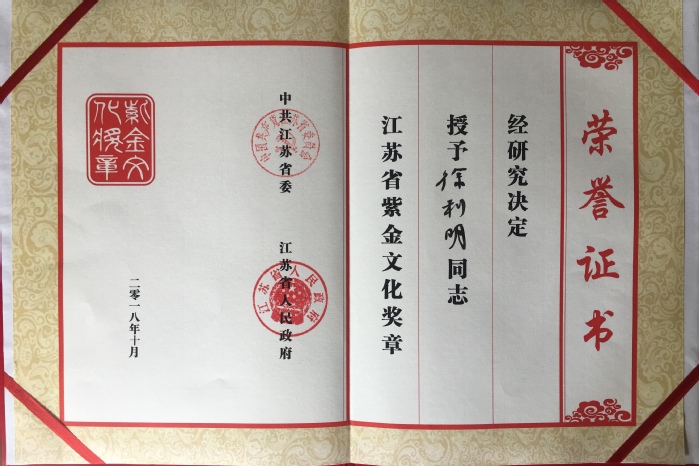 荣誉证书
经研究决定
授予徐利明同志
江苏省紫金文化奖章
中共江苏省委
江苏省人民政府
江苏省人民政府
二零一八年十月
紫金文化奖章